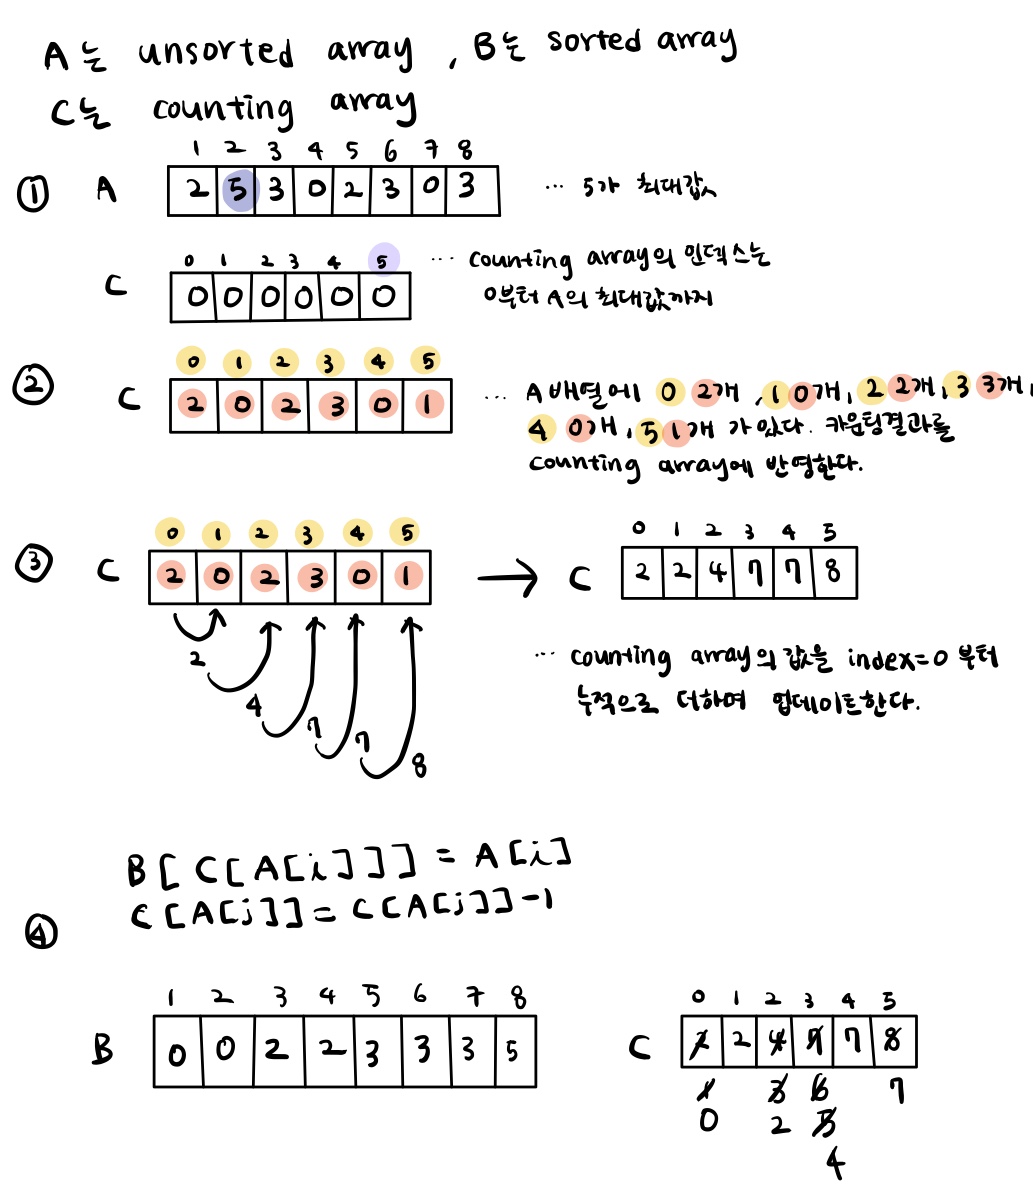 A는 unsorted array, B는 sorted array
C는 counting array
1 2 3 4 5 6 7 8
① A 2 5 3 0 2 3 0 3 ... 5가 최대값
0 1 2 3 4 5
C 0 0 0 0 0 0
... counting array의 인덱스는
0부터 A의 최대값까지
0 1 2 3 4 5
② C 2 0 2 3 0 1
... A배열에 0 2개, 1 0개, 2 2개, 3 3개,
4 0개, 5 1개 가 있다. 카운팅결과를
counting array에 반영한다.
0 1 2 3 4 5
③ C 2 0 2 3 0 1
2
4
7
7
8
→
0 1 2 3 4 5
C 2 2 4 7 7 8
... counting array의 값을 index=0 부터
누적으로 더하며 업데이트한다.
④
B[C[A[i]]] = A[i]
C[A[j]] = C[A[j]]-1
1 2 3 4 5 6 7 8
B 0 0 2 2 3 3 3 5
0 1 2 3 4 5
C 2 2 4 7 7 8
1 3 6 7
0 2 5
4